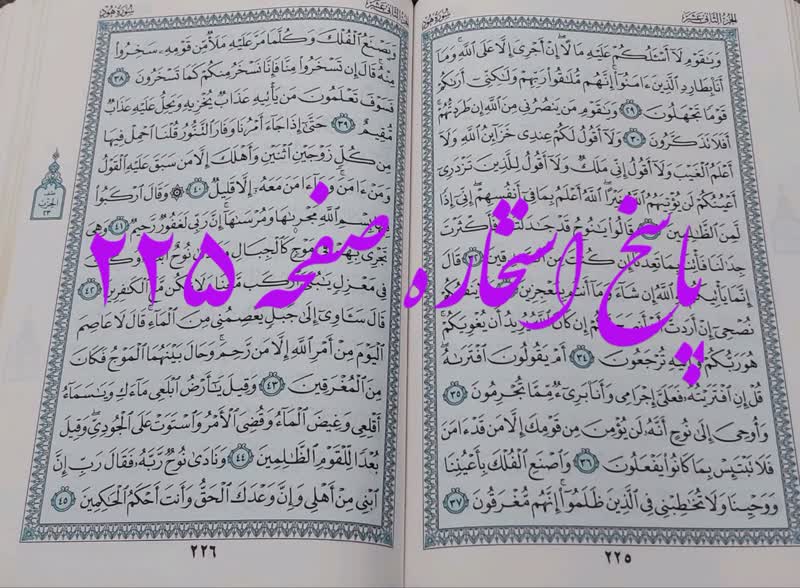 الجزء الثاني عشر سورة هود
وَيَٰقَوْمِ لَآ أَسْـَٔلُكُمْ عَلَيْهِ مَالًا ۖ إِنْ أَجْرِىَ إِلَّا عَلَى ٱللَّهِ ۚ وَمَآ
أَنَا۠ بِطَارِدِ ٱلَّذِينَ ءَامَنُوٓا۟ ۚ إِنَّهُم مُّلَٰقُوا۟ رَبِّهِمْ وَلَٰكِنِّىٓ أَرَىٰكُمْ
قَوْمًا تَجْهَلُونَ ٢٩ وَيَٰقَوْمِ مَن يَنصُرُنِى مِنَ ٱللَّهِ إِن طَرَدتُّهُمْ ۚ
أَفَلَا تَذَكَّرُونَ ٣٠ وَلَآ أَقُولُ لَكُمْ عِندِى خَزَآئِنُ ٱللَّهِ وَلَآ
أَعْلَمُ ٱلْغَيْبَ وَلَآ أَقُولُ إِنِّى مَلَكٌ وَلَآ أَقُولُ لِلَّذِينَ تَزْدَرِىٓ
أَعْيُنُكُمْ لَن يُؤْتِيَهُمُ ٱللَّهُ خَيْرًا ۖ ٱللَّهُ أَعْلَمُ بِمَا فِىٓ أَنفُسِهِمْ ۖ إِنِّىٓ إِذًا
لَّمِنَ ٱلظَّٰلِمِينَ قَالُوا۟ يَٰنُوحُ قَدْ جَٰدَلْتَنَا فَأَكْثَرْتَ
جِدَٰلَنَا فَأْتِنَا بِمَا تَعِدُنَآ إِن كُنتَ مِنَ ٱلصَّٰدِقِينَ ٣٢ قَالَ
إِنَّمَا يَأْتِيكُم بِهِ ٱللَّهُ إِن شَآءَ وَمَآ أَنتُم بِمُعْجِزِينَ وَلَا يَنفَعُكُمْ
نُصْحِىٓ إِنْ أَرَدتُّ أَنْ أَنصَحَ لَكُمْ إِن كَانَ ٱللَّهُ يُرِيدُ أَن يُغْوِيَكُمْ ۚ
هُوَ رَبُّكُمْ وَإِلَيْهِ تُرْجَعُونَ ٣٤ أَمْ يَقُولُونَ ٱفْتَرَىٰهُ ۖ
قُلْ إِنِ ٱفْتَرَيْتُهُۥ فَعَلَىَّ إِجْرَامِى وَأَنَا۠ بَرِىٓءٌ مِّمَّا تُجْرِمُونَ ٣٥
وَأُوحِىَ إِلَىٰ نُوحٍ أَنَّهُۥ لَن يُؤْمِنَ مِن قَوْمِكَ إِلَّا مَن قَدْ ءَامَنَ
فَلَا تَبْتَئِسْ بِمَا كَانُوا۟ يَفْعَلُونَ ٣٦ وَٱصْنَعِ ٱلْفُلْكَ بِأَعْيُنِنَا
وَوَحْيِنَا وَلَا تُخَٰطِبْنِى فِى ٱلَّذِينَ ظَلَمُوٓا۟ ۚ إِنَّهُم مُّغْرَقُونَ ٣٧
٢٢٥
الجزء الثاني عشر سورة هود
وَيَصْنَعُ ٱلْفُلْكَ وَكُلَّمَا مَرَّ عَلَيْهِ مَلَأٌ مِّن قَوْمِهِۦ سَخِرُوا۟
مِنْهُ ۚ قَالَ إِن تَسْخَرُوا۟ مِنَّا فَإِنَّا نَسْخَرُ مِنكُمْ كَمَا تَسْخَرُونَ ٣٨
فَسَوْفَ تَعْلَمُونَ مَن يَأْتِيهِ عَذَابٌ يُخْزِيهِ وَيَحِلُّ عَلَيْهِ عَذَابٌ
مُّقِيمٌ ٣٩ حَتَّىٰٓ إِذَا جَآءَ أَمْرُنَا وَفَارَ ٱلتَّنُّورُ قُلْنَا ٱحْمِلْ فِيهَا
مِن كُلٍّ زَوْجَيْنِ ٱثْنَيْنِ وَأَهْلَكَ إِلَّا مَن سَبَقَ عَلَيْهِ ٱلْقَوْلُ
وَمَنْ ءَامَنَ ۚ وَمَآ ءَامَنَ مَعَهُۥٓ إِلَّا قَلِيلٌ ٤٠ ۞ وَقَالَ ٱرْكَبُوا۟
فِيهَا بِسْمِ ٱللَّهِ مَجْر۪ىٰهَا وَمُرْسَىٰهَآ ۚ إِنَّ رَبِّى لَغَفُورٌ رَّحِيمٌ ٤١ وَهِىَ
تَجْرِى بِهِمْ فِى مَوْجٍ كَٱلْجِبَالِ وَنَادَىٰ نُوحٌ ٱبْنَهُۥ وَكَانَ
فِى مَعْزِلٍ يَٰبُنَىَّ ٱرْكَب مَّعَنَا وَلَا تَكُن مَّعَ ٱلْكَٰفِرِينَ ٤٢
قَالَ سَـَٔاوِىٓ إِلَىٰ جَبَلٍ يَعْصِمُنِى مِنَ ٱلْمَآءِ ۚ قَالَ لَا عَاصِمَ
ٱلْيَوْمَ مِنْ أَمْرِ ٱللَّهِ إِلَّا مَن رَّحِمَ ۚ وَحَالَ بَيْنَهُمَا ٱلْمَوْجُ فَكَانَ
مِنَ ٱلْمُغْرَقِينَ ٤٣ وَقِيلَ يَٰٓأَرْضُ ٱبْلَعِى مَآءَكِ وَيَٰسَمَآءُ
أَقْلِعِى وَغِيضَ ٱلْمَآءُ وَقُضِىَ ٱلْأَمْرُ وَٱسْتَوَتْ عَلَى ٱلْجُودِىِّ ۖ وَقِيلَ
بُعْدًا لِّلْقَوْمِ ٱلظَّٰلِمِينَ ٤٤ وَنَادَىٰ نُوحٌ رَّبَّهُۥ فَقَالَ رَبِّ إِنَّ
ٱبْنِى مِنْ أَهْلِى وَإِنَّ وَعْدَكَ ٱلْحَقُّ وَأَنتَ أَحْكَمُ ٱلْحَٰكِمِينَ ٤٥
٢٢٦
الحزب
٢٣
پاسخ استخاره صفحه ۲۲۵